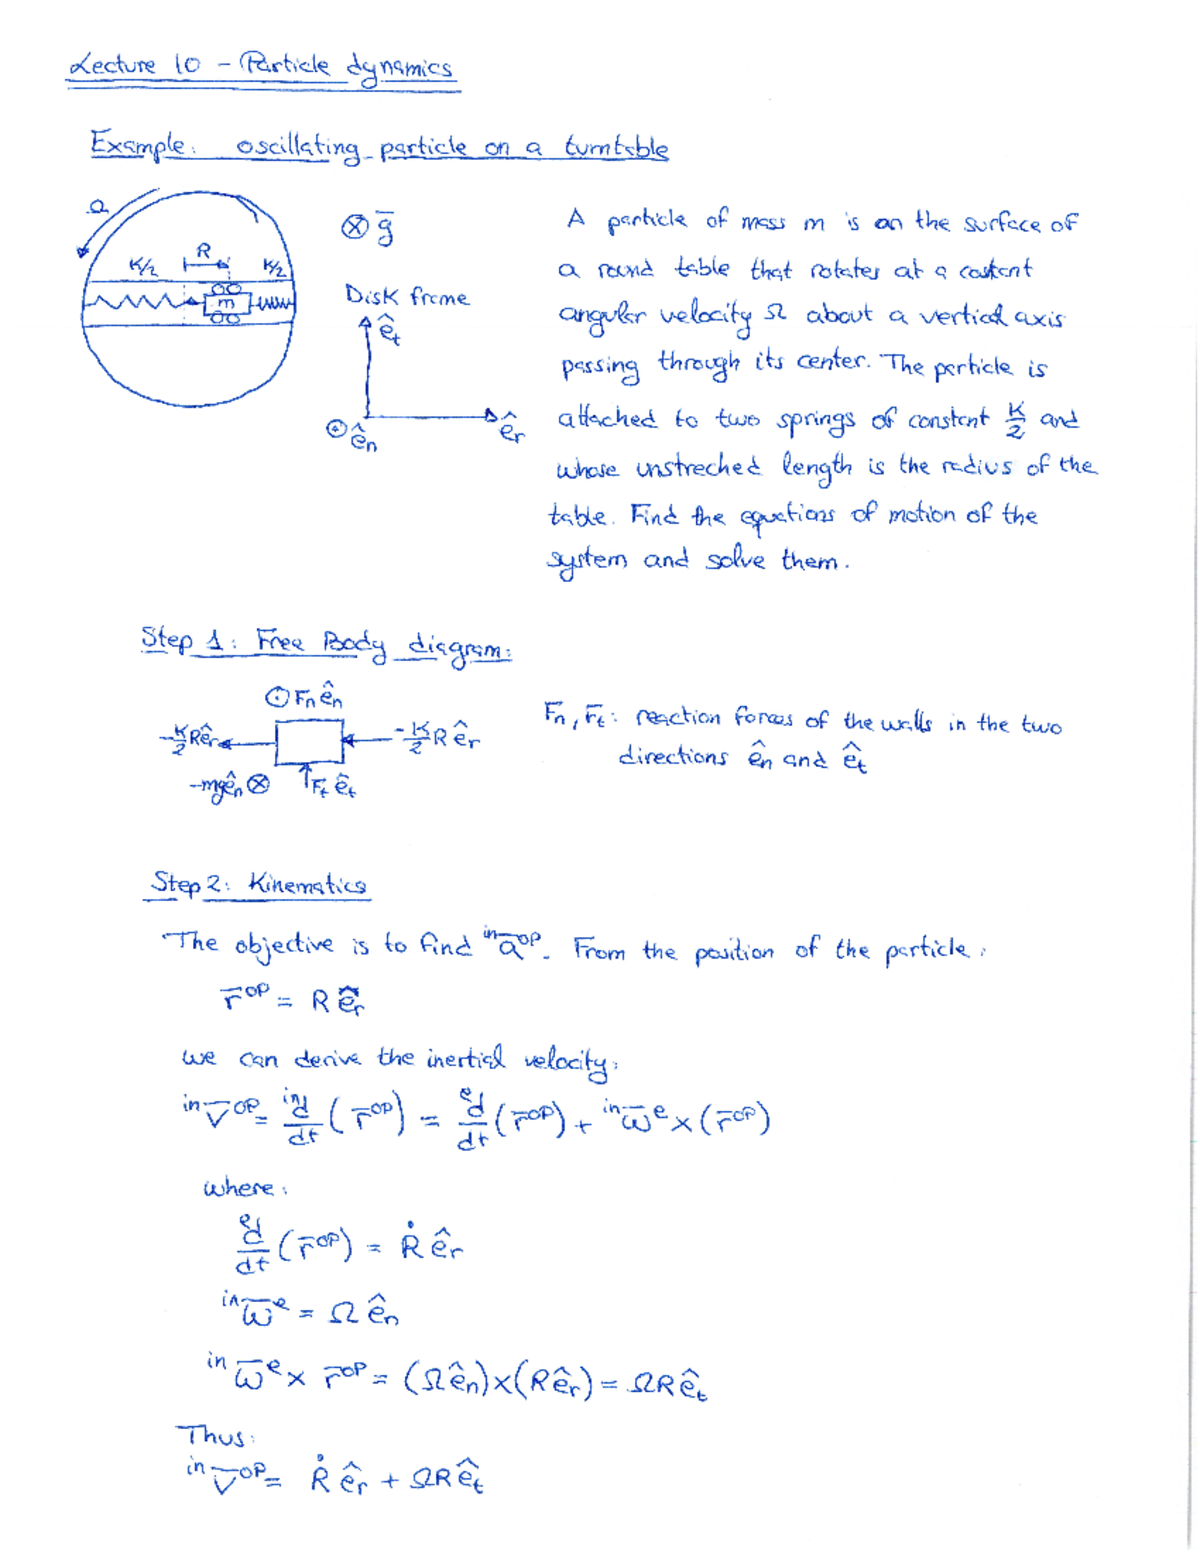 Lecture 10 - Particle dynamics
Example: oscillating particle on a turntable
Ω
R
K/2
K/2
m
⊗ g̅
Disk frame
ê_t
ê_r
⊙ ê_n
A particle of mass m is on the surface of
a round table that rotates at a constant
angular velocity Ω about a vertical axis
passing through its center. The particle is
attached to two springs of constant K/2 and
whose unstreched length is the radius of the
table. Find the equations of motion of the
system and solve them.
Step 1: Free Body diagram:
⊙ F_n ê_n
-K/2 R ê_r
-K/2 R ê_r
-mg ê_n ⊗
F_t ê_t
F_n, F_t: reaction forces of the walls in the two
directions ê_n and ê_t
Step 2: Kinematics
The objective is to find ^in a̅^OP. From the position of the particle:
r̅^OP = R ê_r
we can derive the inertial velocity:
^in v̅^OP = ^in d/dt (r̅^OP) = ^e d/dt (r̅^OP) + ^in ω̅^e × (r̅^OP)
where:
^e d/dt (r̅^OP) = Ṙ ê_r
^in ω̅^e = Ω ê_n
^in ω̅^e × r̅^OP = (Ω ê_n) × (R ê_r) = ΩR ê_t
Thus:
^in v̅^OP = Ṙ ê_r + ΩR ê_t